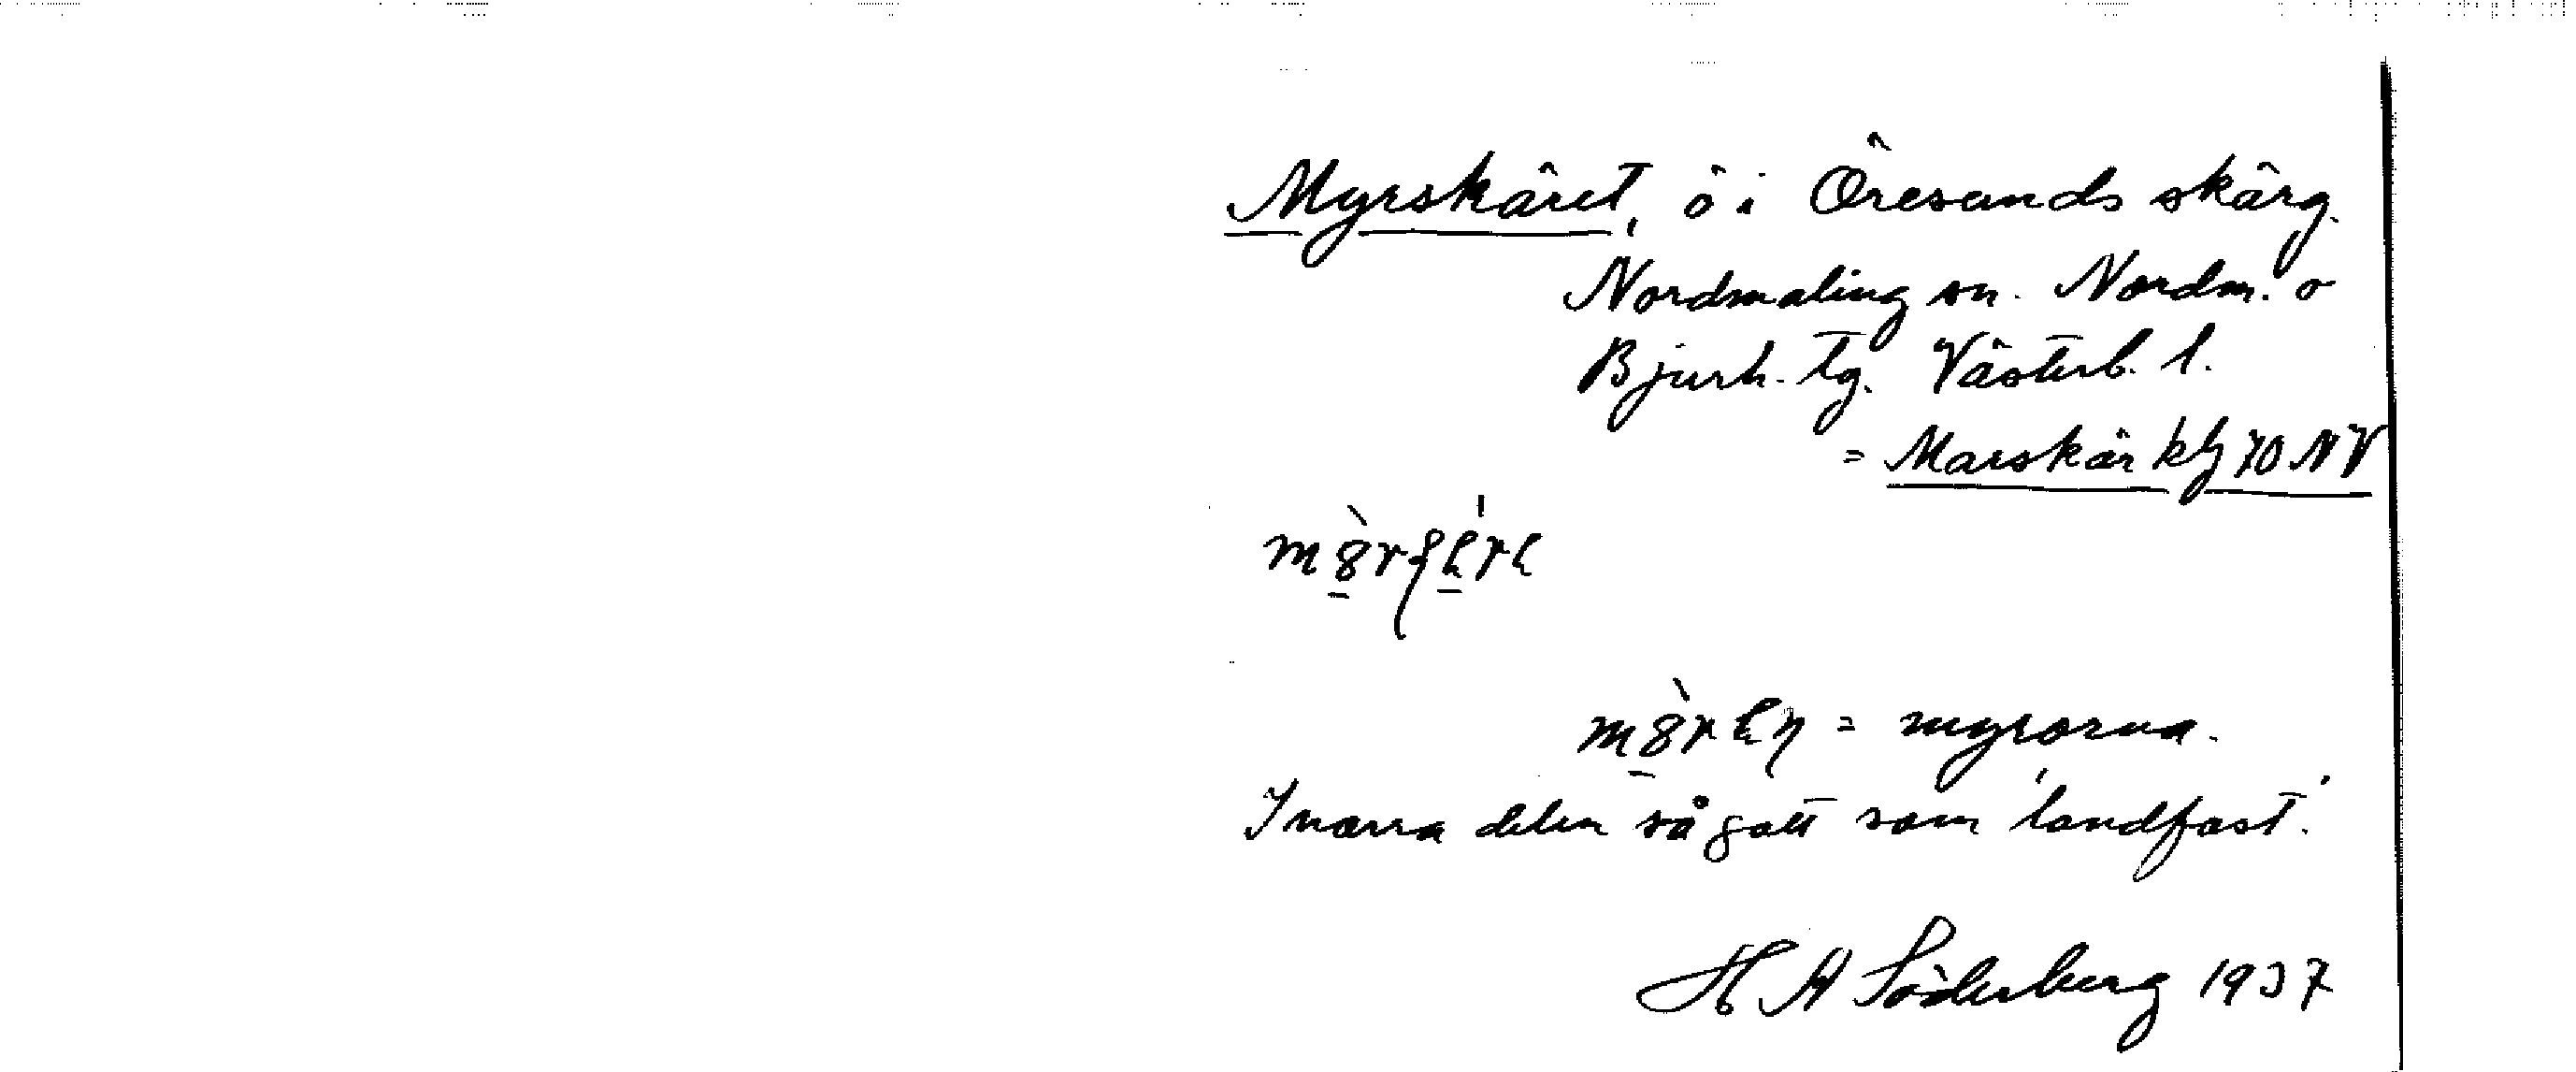 Myrskäret, ö i Öresunds skärg.
Nordmaling sn. Nordm. o
Bjurh. tg. Västerb. l.
= Marskär kbl 70 NV
= myrorna.
Inarra delen så gott som 'landfast'.
H A Söderberg 1937